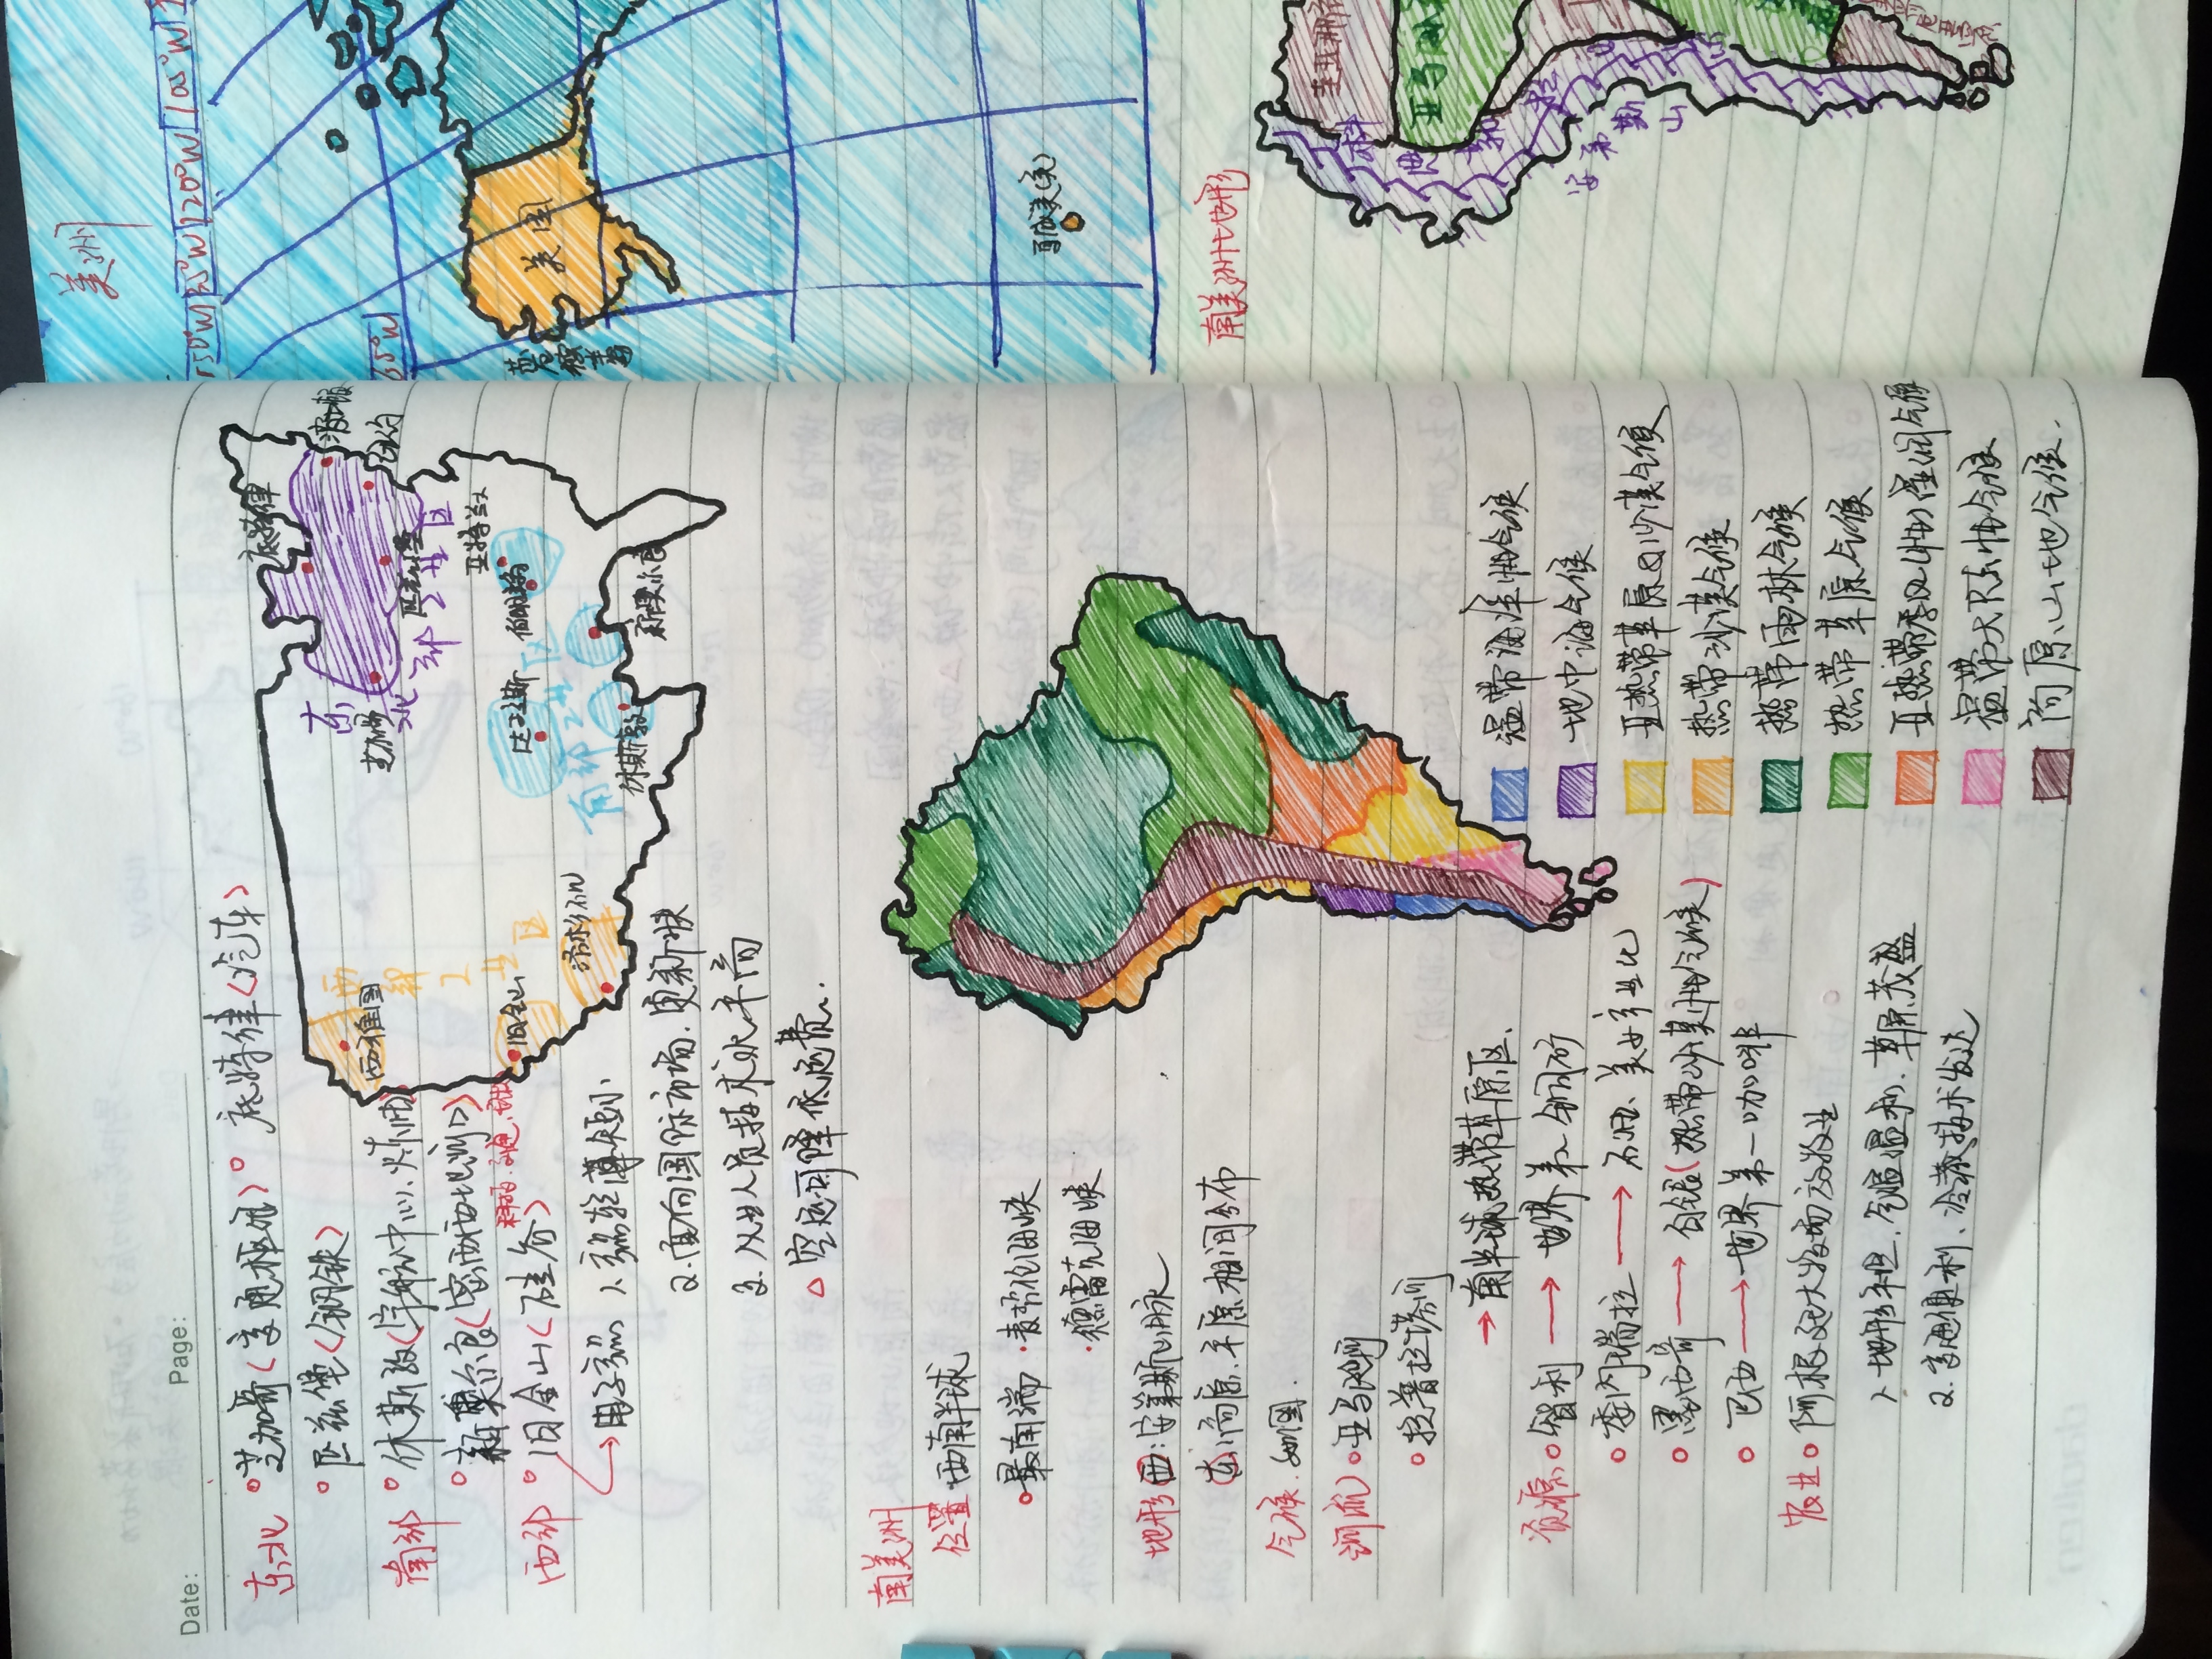 Date:
Page:
东北 芝加哥(交通枢纽) 底特律(汽车)
匹兹堡(钢铁)
南部 休斯敦(宇航中心、炼油)
新奥尔良(密西西比河口)
西部 旧金山(硅谷) 科技、交通
电子产品 1、产品轻薄短小
2.面向国际市场.更新快
3.从业人员技术水平高
△ 空运可降低运费.
西部工业区
东北部工业区
南部工业区
西雅图
旧金山
洛杉矶
底特律
波士顿
芝加哥
纽约
匹兹堡
亚特兰大
达拉斯
伯明翰
休斯敦
新奥尔良
南美洲
位置 西南半球
最南端 ·麦哲伦海峡
·德雷克海峡
地形 西:安第斯山脉
东:高原.平原相间分布
气候.如图.
河流 亚马逊河
拉普拉塔河
→南半球热带草原区.
资源 智利 → 世界第一铜矿
委内瑞拉 → 石油、美女产业化
墨西哥 → 白银(热带沙漠性气候)
巴西 → 世界第一咖啡
农业 阿根廷大牧场放牧业
1.地形平坦.气温温和.草原茂盛
2.交通便利、冷藏技术发达
温带海洋性气候
地中海气候
亚热带草原&沙漠气候
热带沙漠气候
热带雨林气候
热带草原气候
亚热带季风(性)湿润气候
温带大陆性气候
高原山地气候.
美洲
150°W 135°W 120°W 105°W
65°N
美国
夏威夷(美)
南美洲地形
圭亚那高
亚马孙
科迪勒拉山系
安第斯山